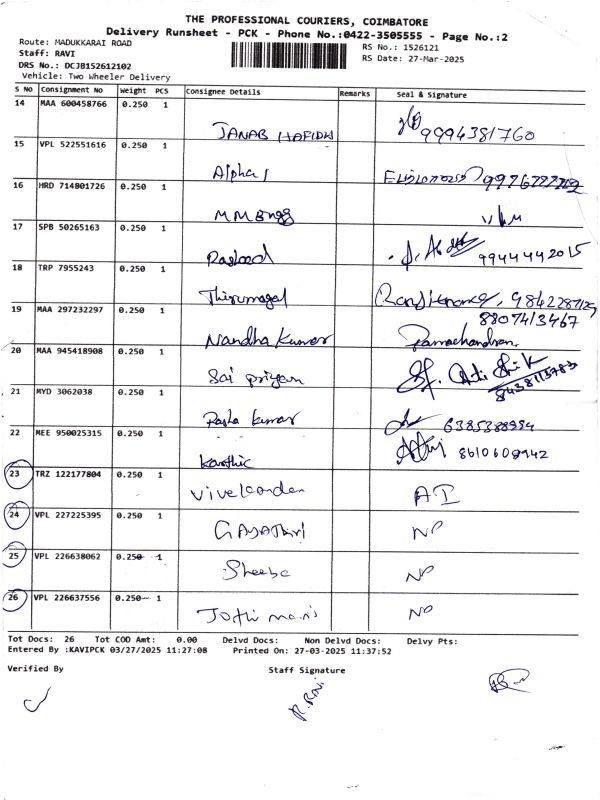 THE PROFESSIONAL COURIERS, COIMBATORE
Delivery Runsheet - PCK - Phone No.:0422-3505555 - Page No.:2
Route: MADUKKARAI ROAD
Staff: RAVI
DRS No.: DCJB152612102
Vehicle: Two Wheeler Delivery
RS No.: 1526121
RS Date: 27-Mar-2025
S No Consignment No Weight PCS Consignee Details Remarks Seal & Signature
14 MAA 600458766 0.250 1 JANAB 9994381760
15 VPL 522551616 0.250 1 Alpha 1
16 HRD 714801726 0.250 1 MM Engg
17 SPB 50265163 0.250 1 Rasheed 9944442015
18 TRP 7955243 0.250 1 Thirumagal 9842287129
8807413467
19 MAA 297232297 0.250 1 Nandha Kumar Ramachandran
20 MAA 945418908 0.250 1 Sai priyan 8438113783
21 MYD 3062038 0.250 1 kumar 6385388994
22 MEE 950025315 0.250 1 Karthic 8610608942
23 TRZ 122177804 0.250 1 AI
24 VPL 227225395 0.250 1 GAYAThri NP
25 VPL 226638062 0.250 1 Sheeba NP
26 VPL 226637556 0.250 1 Jothi mani NP
Tot Docs: 26 Tot COD Amt: 0.00 Delvd Docs: Non Delvd Docs: Delvy Pts:
Entered By :KAVIPCK 03/27/2025 11:27:08 Printed On: 27-03-2025 11:37:52
Verified By Staff Signature
R. Ravi